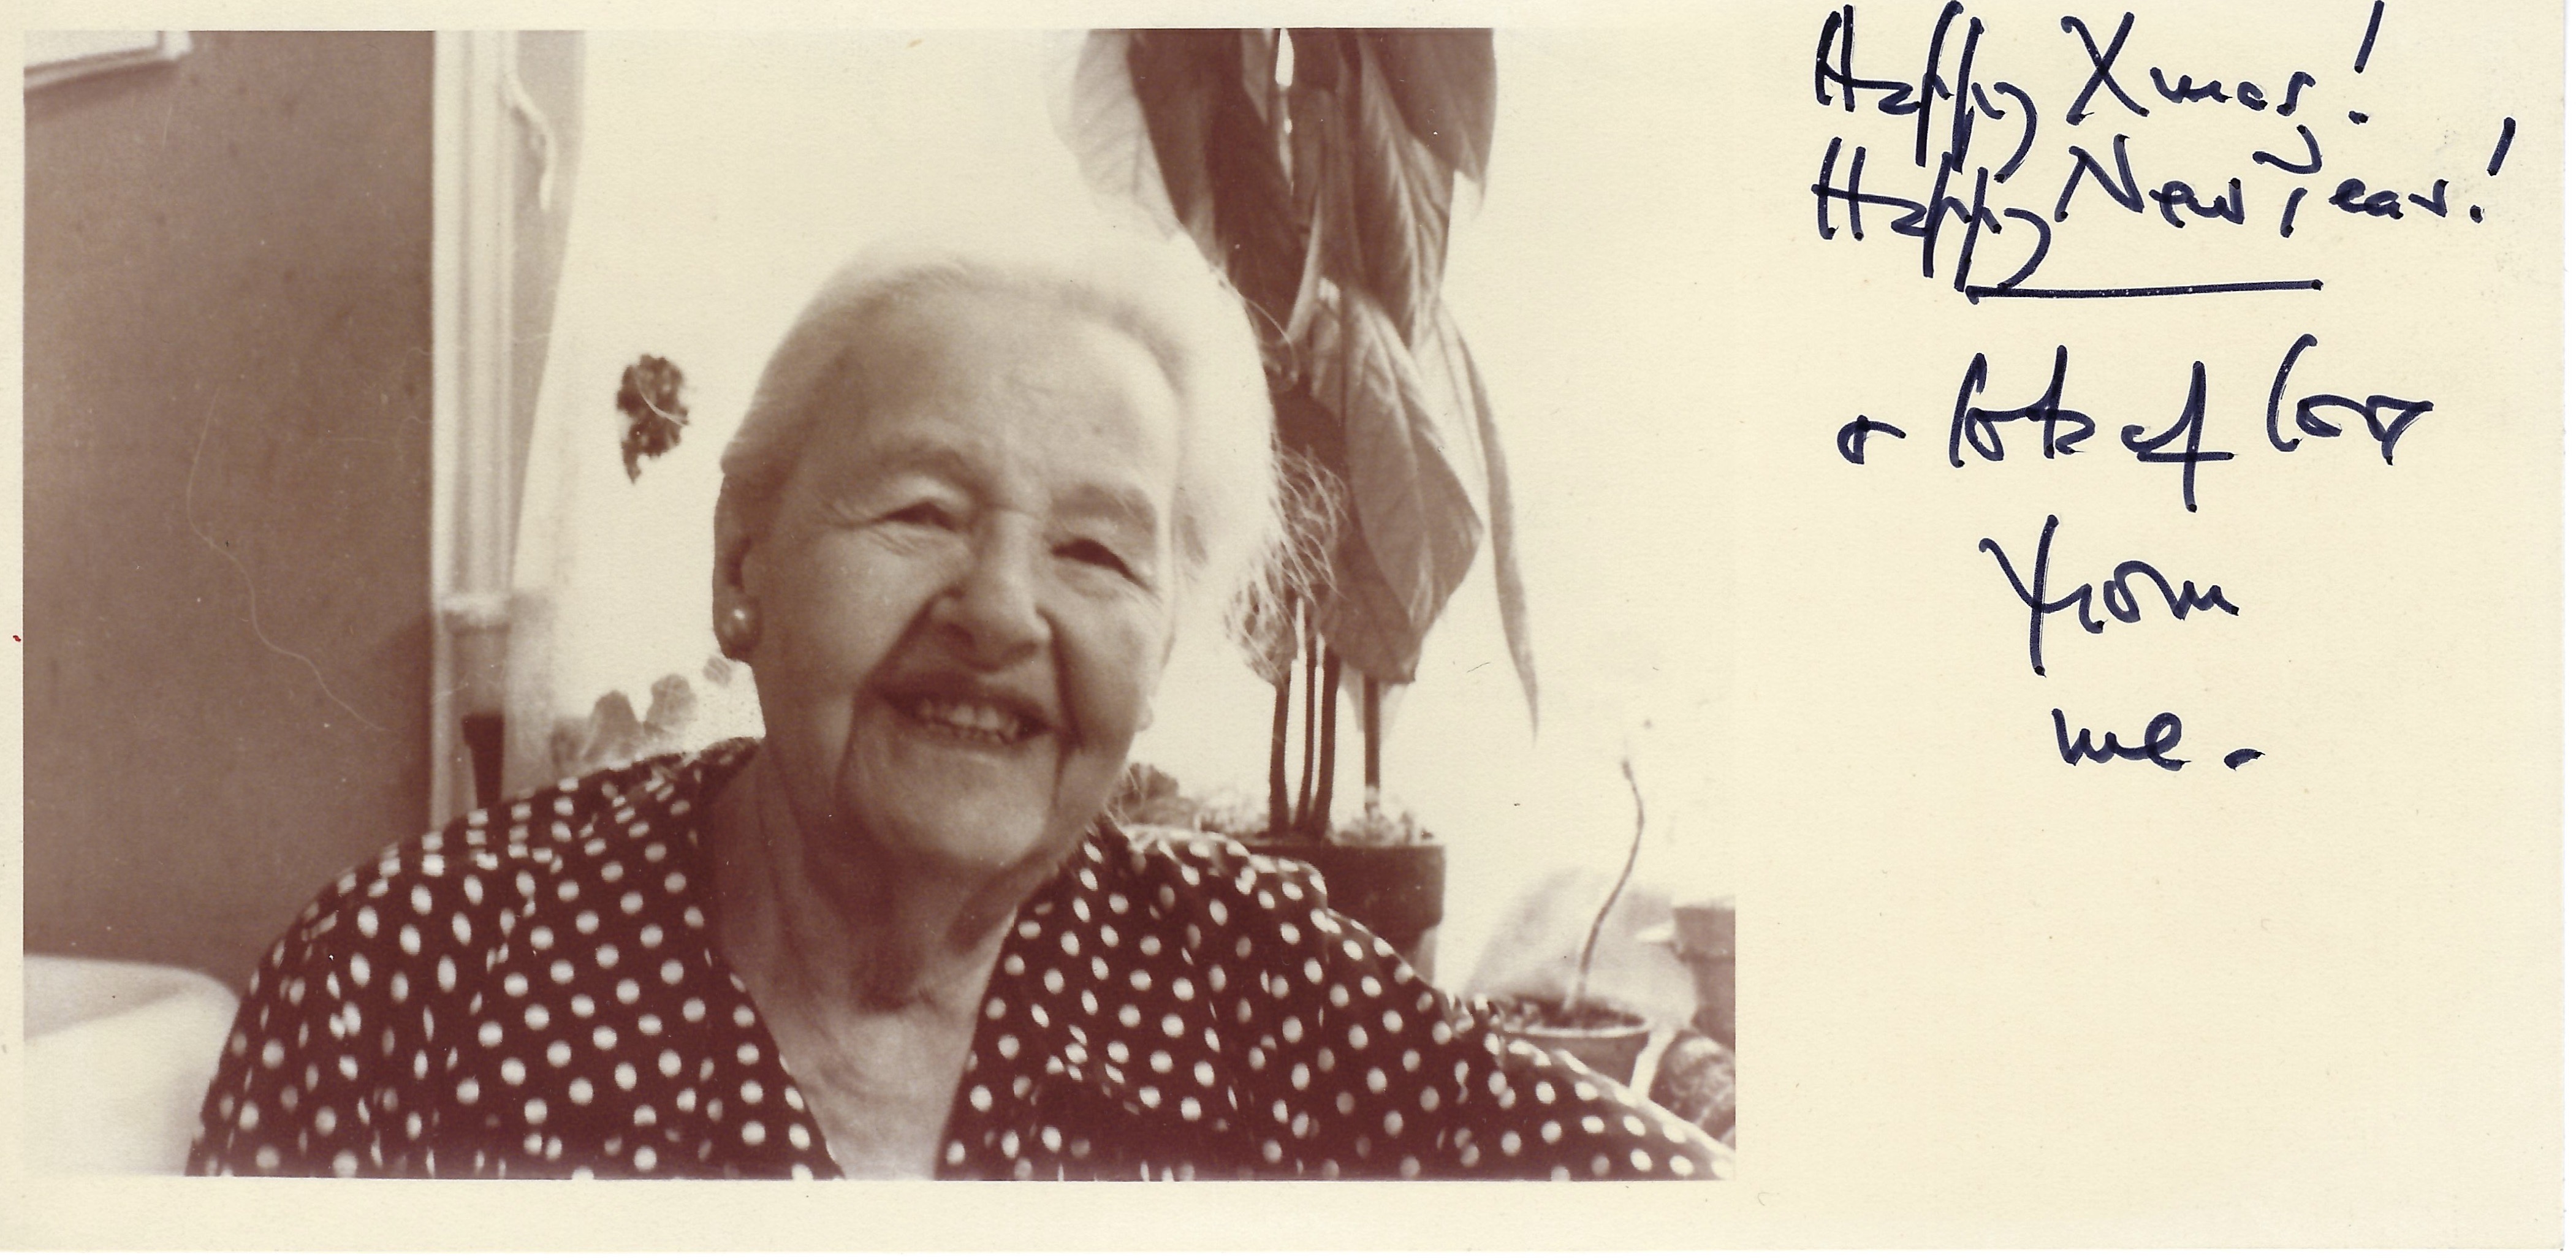 Happy Xmas!
Happy New Year!
& lots of love
from
me.